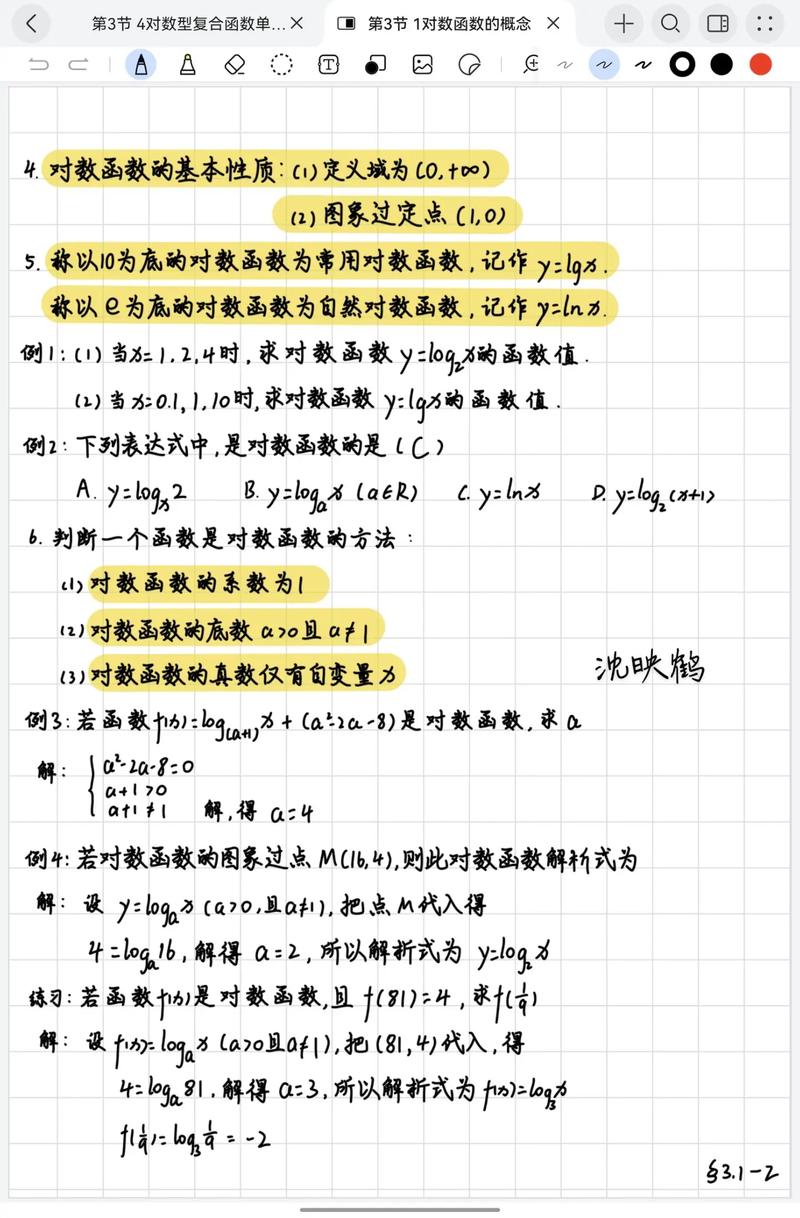 第3节 4对数型复合函数单... 第3节 1对数函数的概念
4. 对数函数的基本性质:(1)定义域为(0,+∞)
(2)图象过定点(1,0)
5. 称以10为底的对数函数为常用对数函数,记作 y=lgx.
称以e为底的对数函数为自然对数函数,记作 y=lnx.
例1:(1)当x=1,2,4时,求对数函数 y=log₂x的函数值.
(2)当x=0.1,1,10时,求对数函数 y=lgx的函数值.
例2:下列表达式中,是对数函数的是(C)
A. y=logₓ2 B. y=logₐx (a∈R) C. y=lnx D. y=log₂(x+1)
6. 判断一个函数是对数函数的方法:
(1)对数函数的系数为1
(2)对数函数的底数 a>0且 a≠1
(3)对数函数的真数仅有自变量x
沈映鹤
例3:若函数f(x)=log₍ₐ₊₁₎x+(a²-2a-8)是对数函数,求a
解: { a²-2a-8=0
a+1>0
a+1≠1 解,得 a=4
例4:若对数函数的图象过点 M(16,4),则此对数函数解析式为
解:设 y=logₐx (a>0,且a≠1),把点M代入得
4=logₐ16,解得 a=2,所以解析式为 y=log₂x
练习:若函数f(x)是对数函数,且 f(81)=4,求f(1/9)
解:设 f(x)=logₐx (a>0且a≠1),把(81,4)代入,得
4=logₐ81,解得 a=3,所以解析式为 f(x)=log₃x
f(1/9)=log₃1/9=-2
§3.1-2